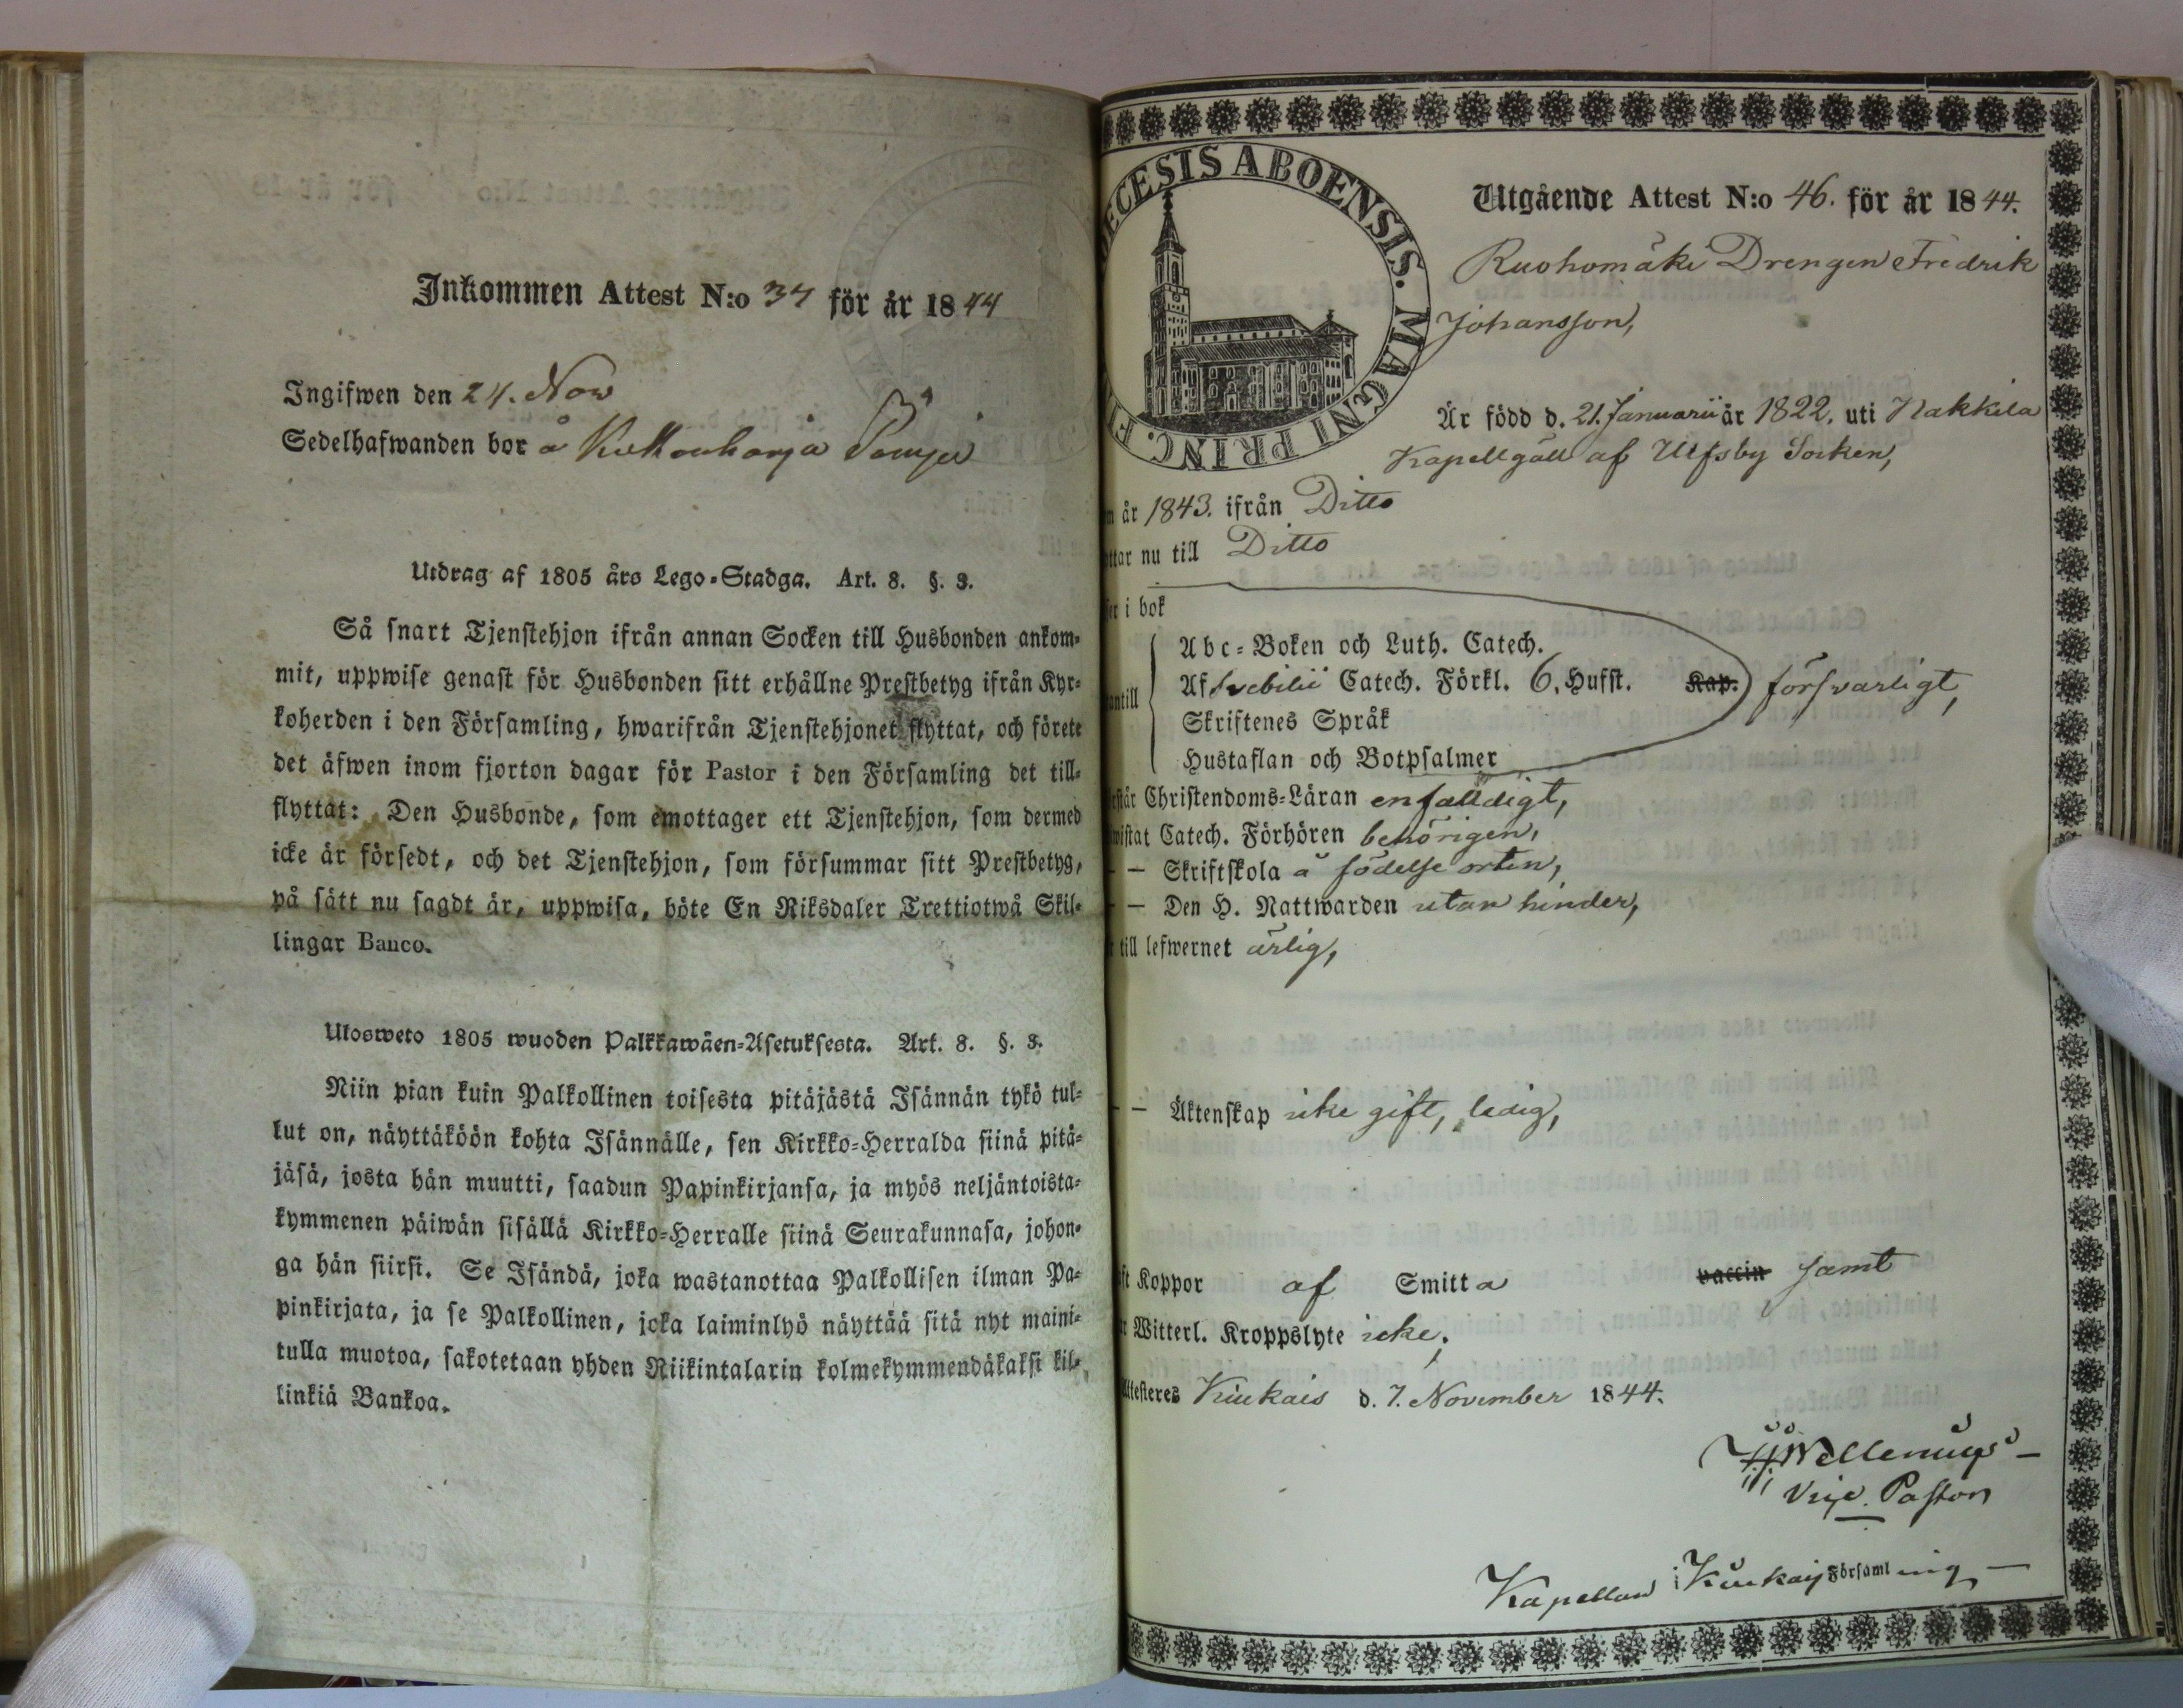 Inkommen Attest N:o 34 för år 1844
Ingifwen den 24. Nov
Sedelhafwanden bor å
Utdrag af 1805 års Lego-Stadga. Art. 8. §. 3.
Så snart Tjenstehjon ifrån annan Socken till Husbonden ankom-
mit, uppwise genast för Husbonden sitt erhållne Prestbetyg ifrån Kyr-
koherden i den Församling, hwarifrån Tjenstehjonet flyttat, och förete
det äfwen inom fjorton dagar för Pastor i den Församling det till-
flyttat: Den Husbonde, som emottager ett Tjenstehjon, som dermed
icke är försedt, och det Tjenstehjon, som försummar sitt Prestbetyg,
på sätt nu sagdt är, uppwisa, böte En Riksdaler Trettiotwå Skil-
lingar Banco.
Ulosweto 1805 wuoden Palkkawäen-Asetuksesta. Art. 8. §. 3.
Niin pian kuin Palkollinen toisesta pitäjästä Isännän tykö tul-
lut on, näyttäköön kohta Isännälle, sen Kirkko-Herralda siinä pitä-
jäsä, josta hän muutti, saadun Papinkirjansa, ja myös neljäntoista-
kymmenen päiwän sisällä Kirkko-Herralle siinä Seurakunnasa, johon-
ga hän siirsi. Se Isändä, joka wastanottaa Palkollisen ilman Pa-
pinkirjata, ja se Palkollinen, joka laiminlyö näyttää sitä nyt maini-
tulla muotoa, sakotetaan yhden Riikintalarin kolmekymmendäkaksi kil-
linkiä Bankoa.
ECESIS ABOENSIS. MAGNI PRINC. FI
Utgående Attest N:o 46. för år 1844.
Ruohomäki Drengen Fredrik
Johansson,
Är född d. 21. Januarii år 1822. uti Nakkila
Kapellgäll af Ulfsby Socken,
år 1843. ifrån Ditto
ttar nu till Ditto
i bok
Abc-Boken och Luth. Catech.
antill Af Svebilii Catech. Förkl. 6. Hufst. Kap. försvarligt,
Skriftenes Språk
Hustaflan och Botpsalmer
står Christendoms-Läran enfalldigt,
wistat Catech. Förhören behörigen,
— Skriftskola å födelse orten,
— — Den H. Nattwarden utan hinder,
till lefwernet ärlig,
— — Äktenskap icke gift, ledig,
ft Koppor af Smitta vaccin samt
Witterl. Kroppslyte icke,
Attesteres Kiukais d. 7. November 1844.
Wellenius
Vice Pastor
Kapellan i Kiukais Församling